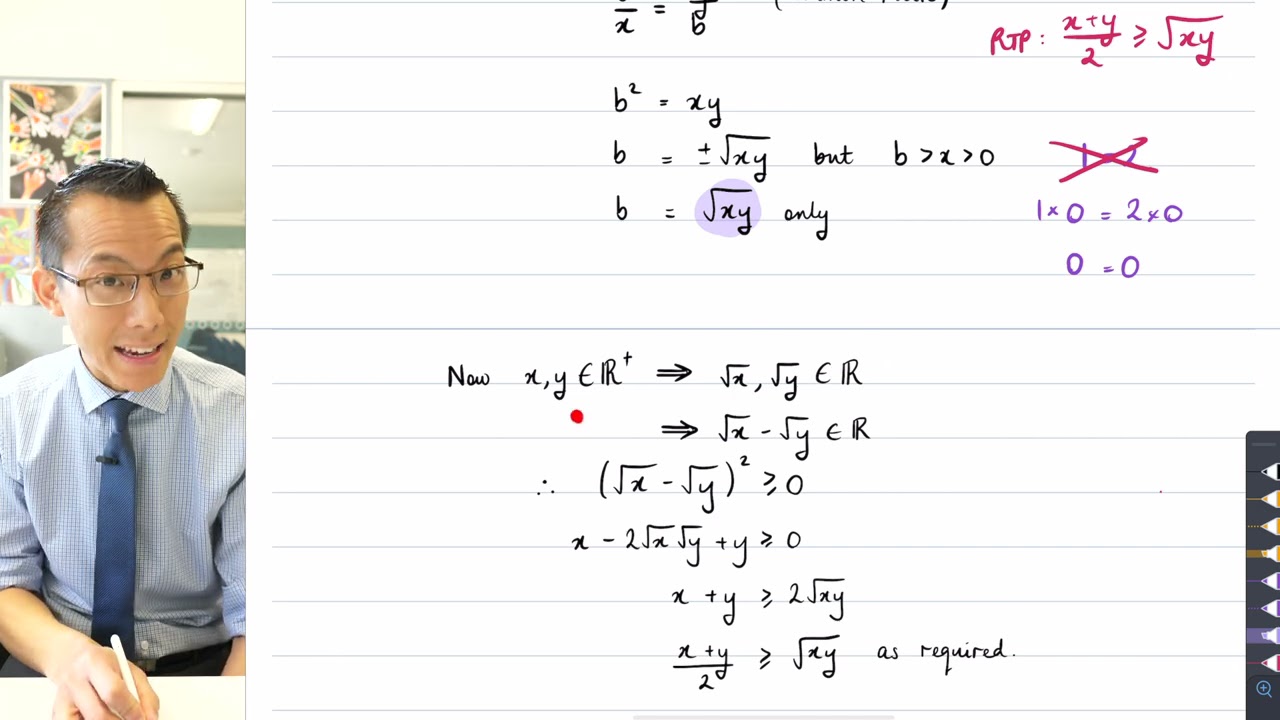 x = b
RTP: (x+y)/2 ≥ √xy
b² = xy
b = ±√xy but b > x > 0
b = √xy only
1×0 = 2×0
0 = 0
Now x, y ∈ ℝ⁺ ⇒ √x, √y ∈ ℝ
⇒ √x - √y ∈ ℝ
∴ (√x - √y)² ≥ 0
x - 2√x√y + y ≥ 0
x + y ≥ 2√xy
(x+y)/2 ≥ √xy as required.